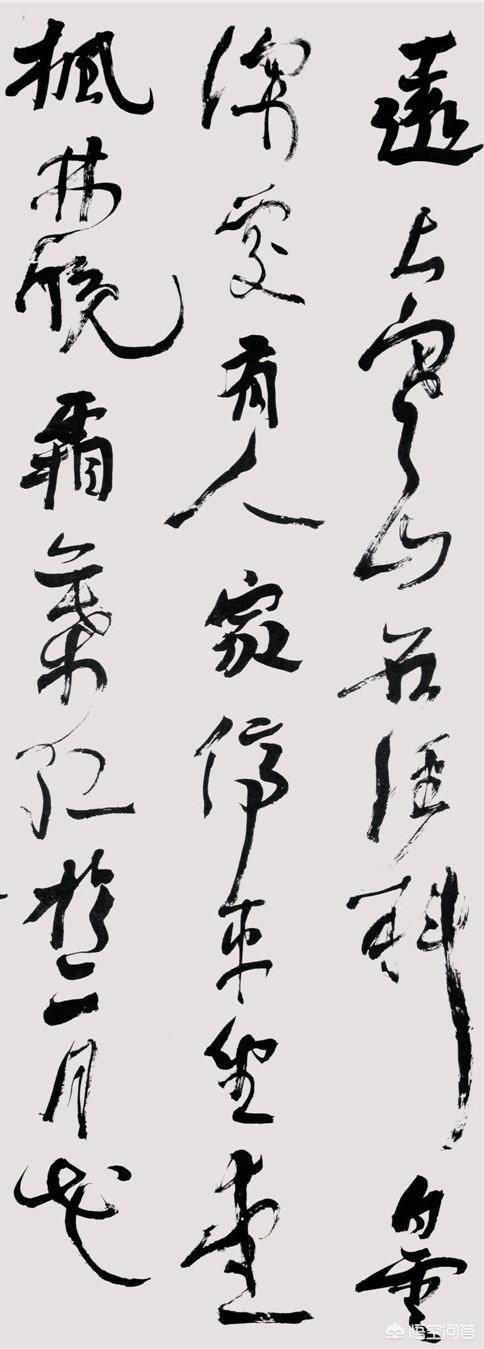 遠上寒山石徑斜白雲
深處有人家停車坐愛
楓林晚霜葉紅於二月花
悟空问答